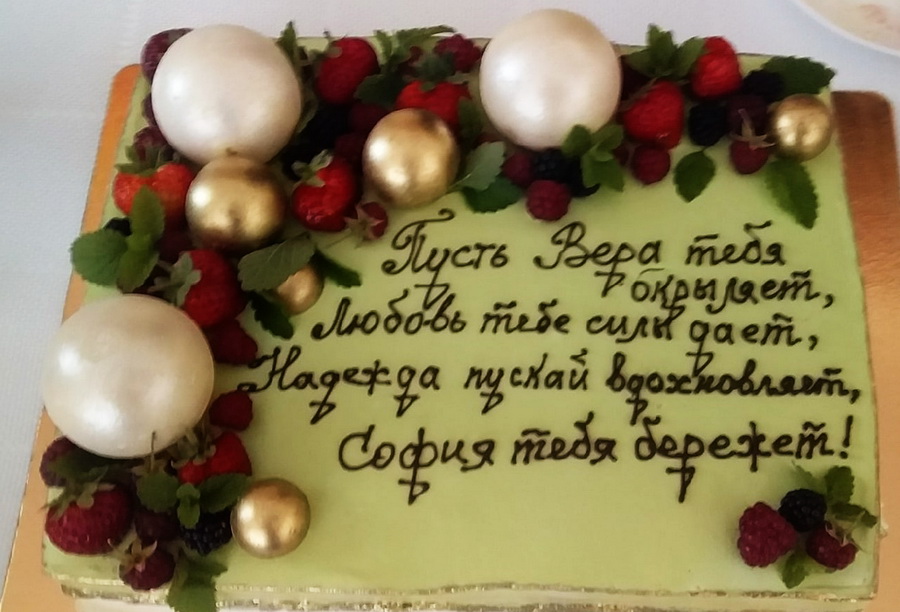 Пусть Вера тебя
окрыляет,
Любовь тебе силы дает,
Надежда пускай вдохновляет,
София тебя бережет!